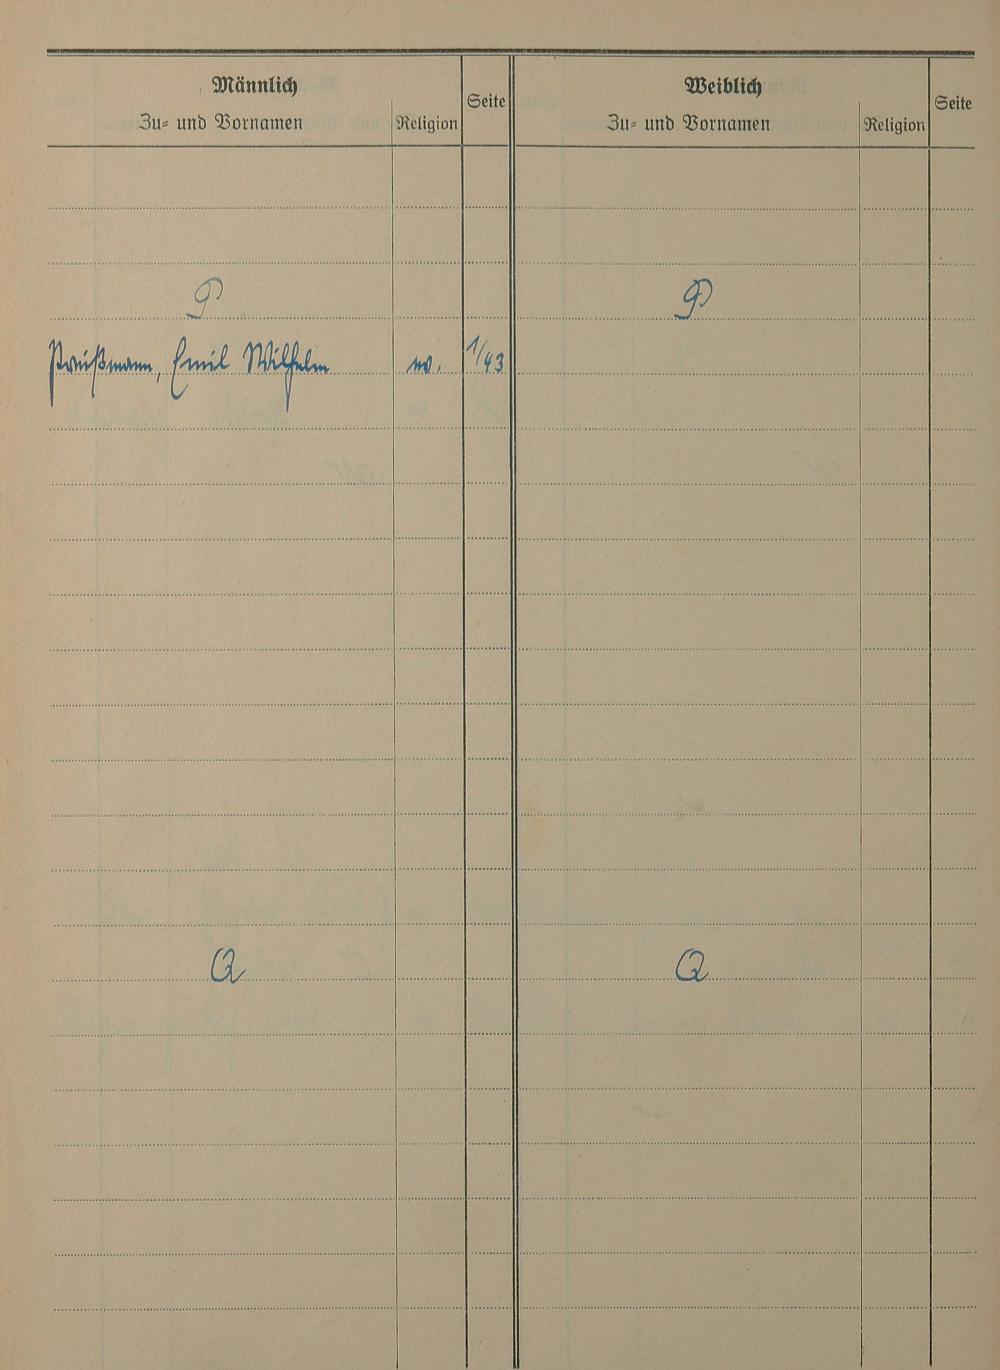 Männlich
Zu- und Vornamen
Religion
Seite
Weiblich
Zu- und Vornamen
Religion
Seite
P
P
Preißmann, Emil Wilhelm ev. 1/43
Q
Q